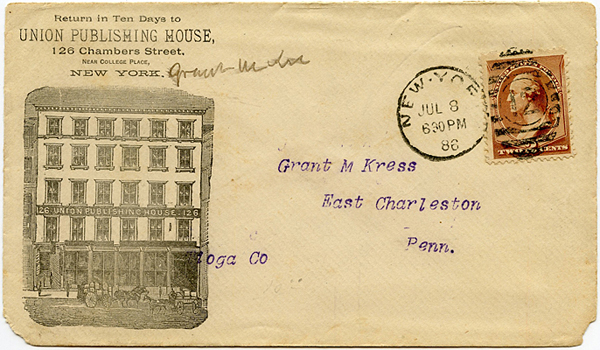 Return in Ten Days to
UNION PUBLISHING HOUSE,
126 Chambers Street,
NEAR COLLEGE PLACE,
NEW YORK.
Grant M
NEW-YORK
JUL 8
630PM
86
TWO CENTS
126 UNION PUBLISHING HOUSE. 126
Grant M Kress
East Charleston
Penn.
ioga Co